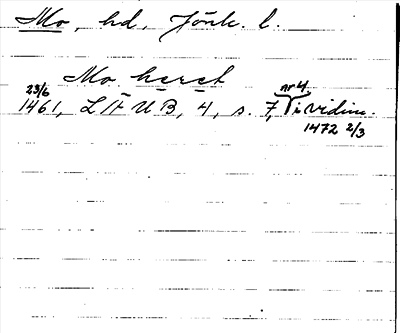 Mo, hd, Jönk. l.
Mo hæret
23/6 nr 4,
1461, L H U B, 4, s. 7, i vidim.
1472 2/3